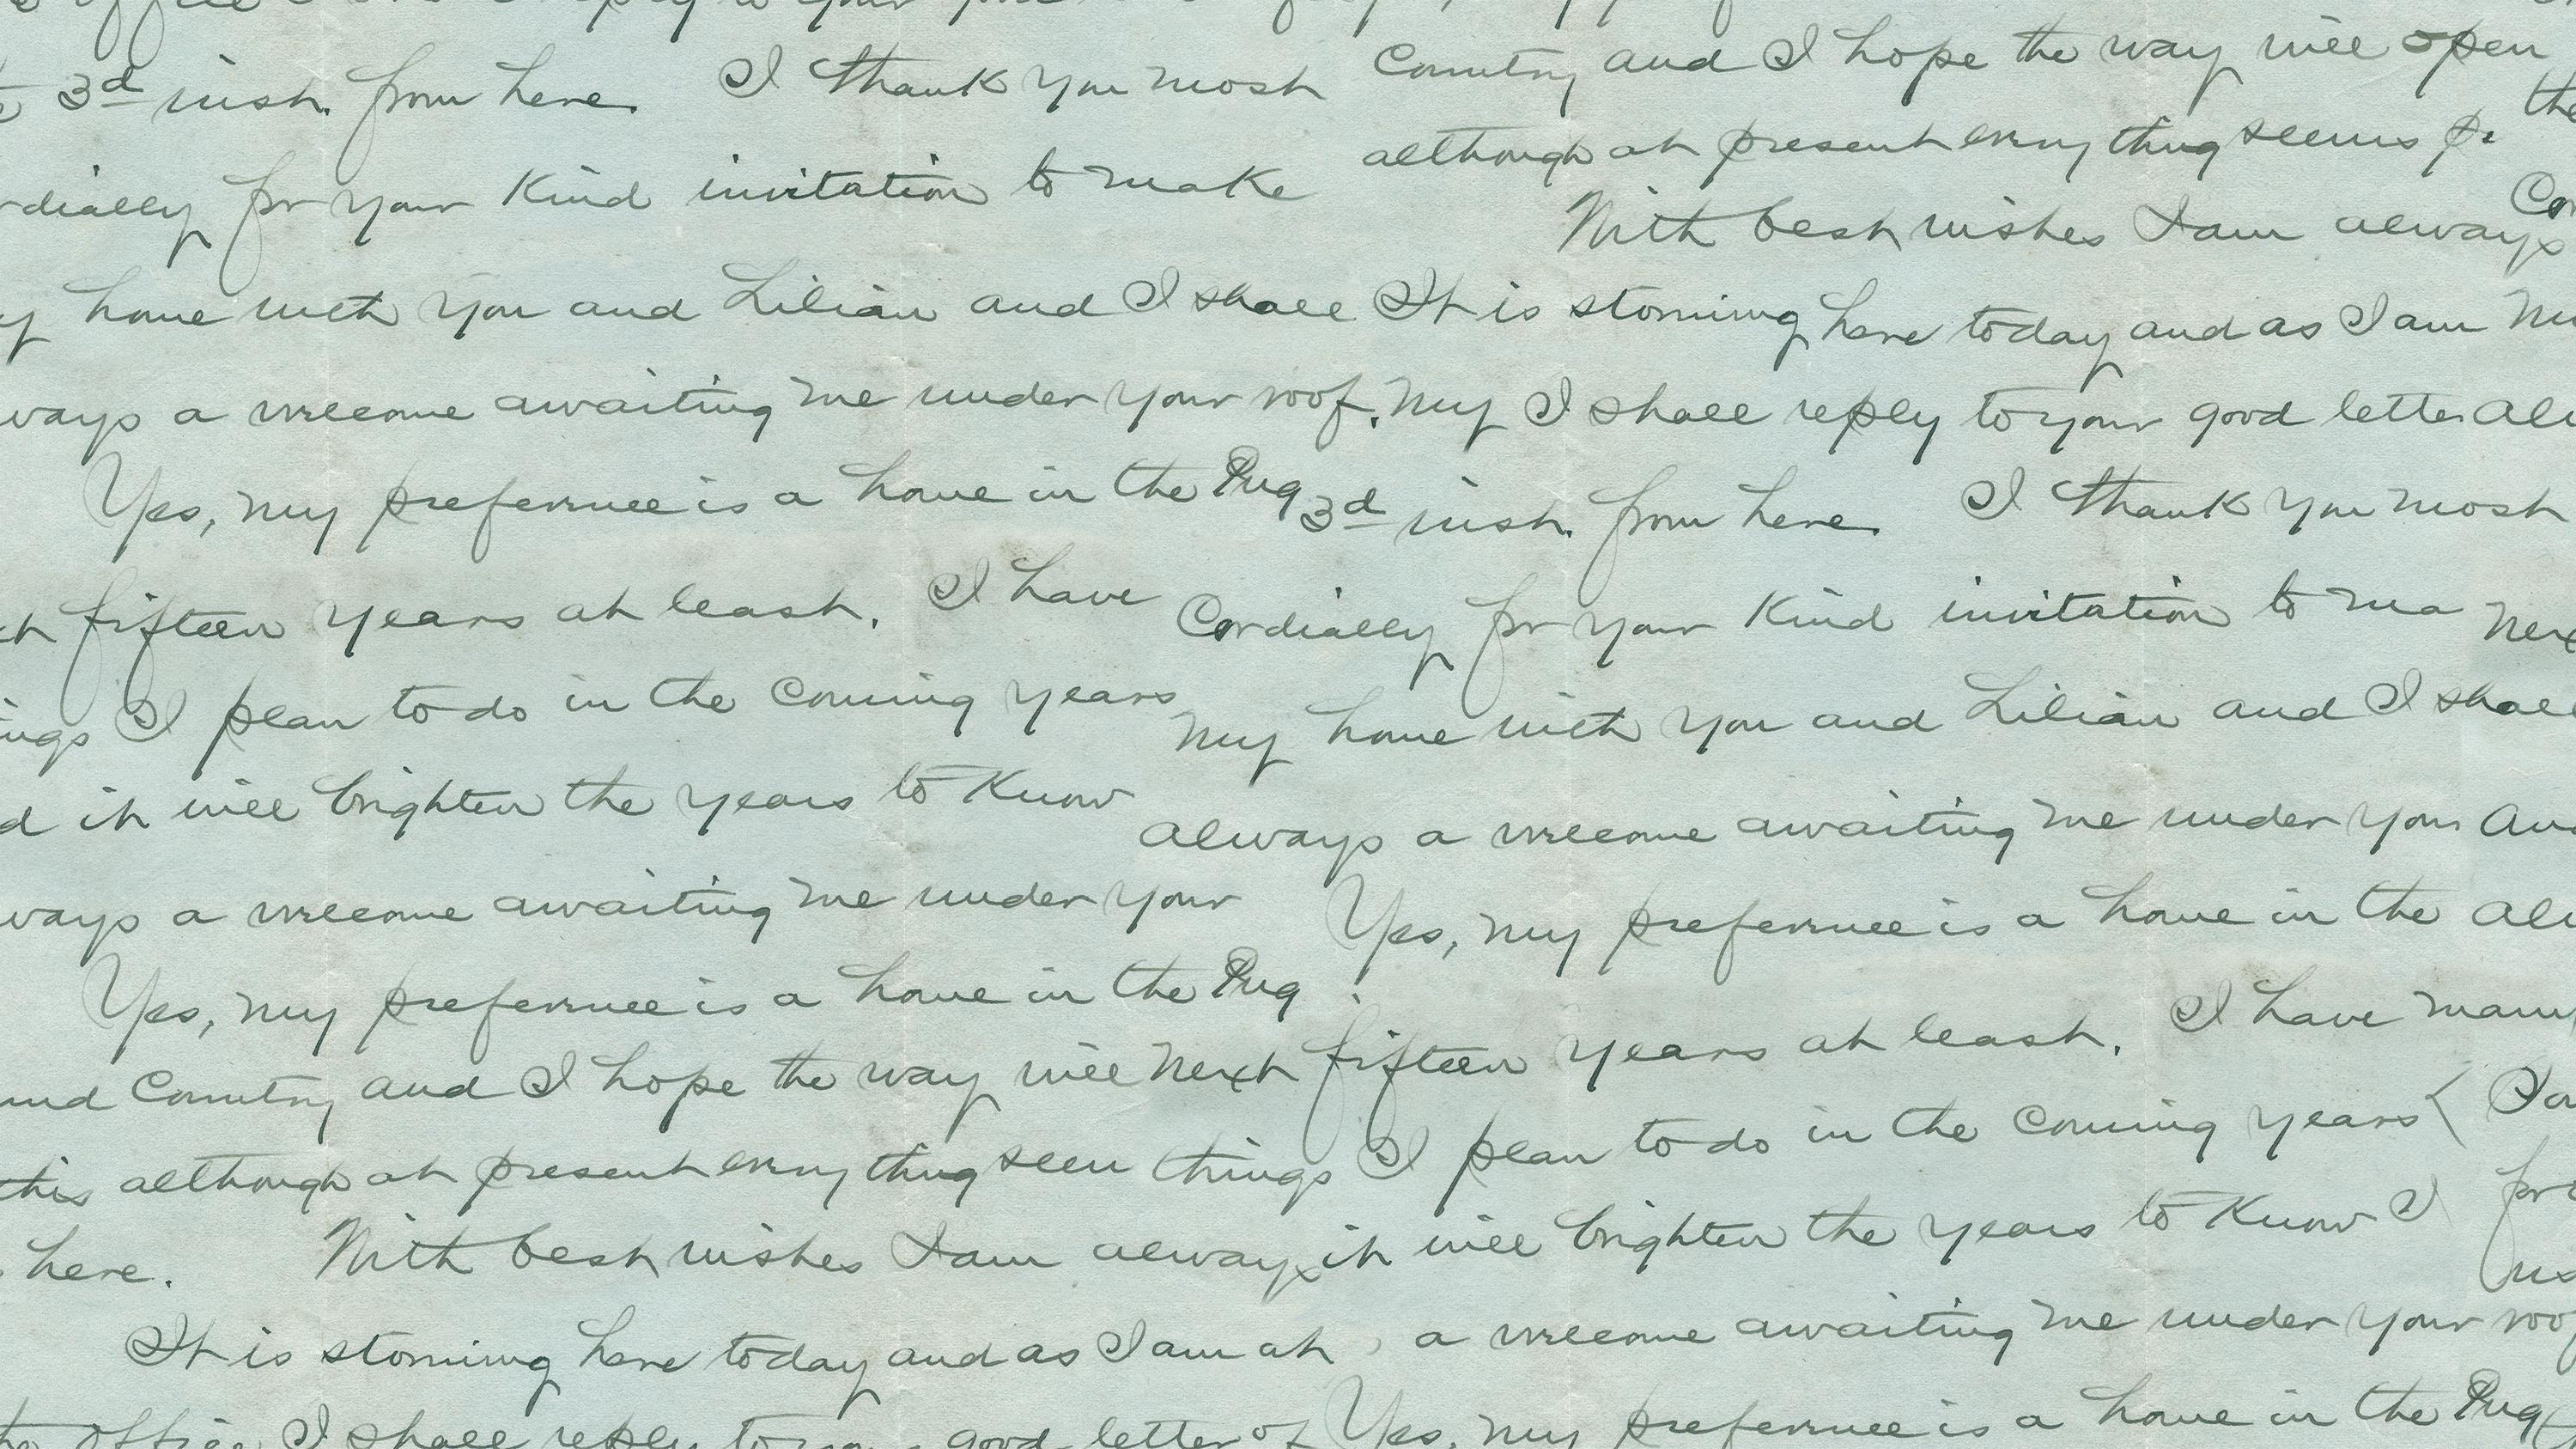 I shall reply to your
Country and I hope the way will open
3d inst. from here. I thank you most
the
although at present everything seems
for your kind invitation to make
With best wishes I am always
home with you and Lilian and I shall It is storming here today and as I am
a welcome awaiting me under your roof. My I shall reply to your good letter
Yes, my preference is a home in the Pug 3d inst. from here. I thank you most
fifteen years at least. I have Cordially for your kind invitation to ma
I plan to do in the coming years My home with you and Lilian and I shall
it will brighten the years to know always a welcome awaiting me under your
a welcome awaiting me under your Yes, my preference is a home in the
Yes, my preference is a home in the Pug
fifteen years at least. I have many
Country and I hope the way will next
things I plan to do in the coming years
this although at present everything seem
it will brighten the years to know I
here. With best wishes I am always
It is storming here today and as I am at a welcome awaiting me under your roof
office I shall reply to good letter of Yes, my preference is a home in the Pug